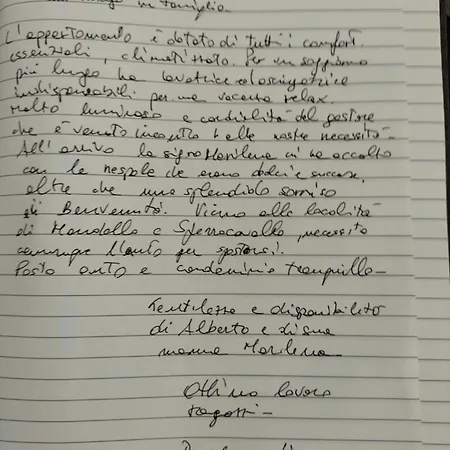 in famiglia.
L'appartamento è dotato di tutti i comfort
essenziali, climatizzato. Per un soggiorno
più lungo ha lavatrice ed asciugatrice
indispensabili per una vacanza relax.
Molto luminoso e cordialità del gestore
che è venuto incontro alle nostre necessità.
All'arrivo la sig.ra Marilena ci ha accolto
con le nespole che erano dolci e succose,
oltre che uno splendido sorriso
di Benvenuto. Vicino alle località
di Mondello e Sferracavallo, necessita
comunque l'auto per spostarsi.
Posto auto e condominio tranquillo -
Gentilezza e disponibilità
di Alberto e di sua
mamma Marilena -
Ottimo lavoro
ragazzi -